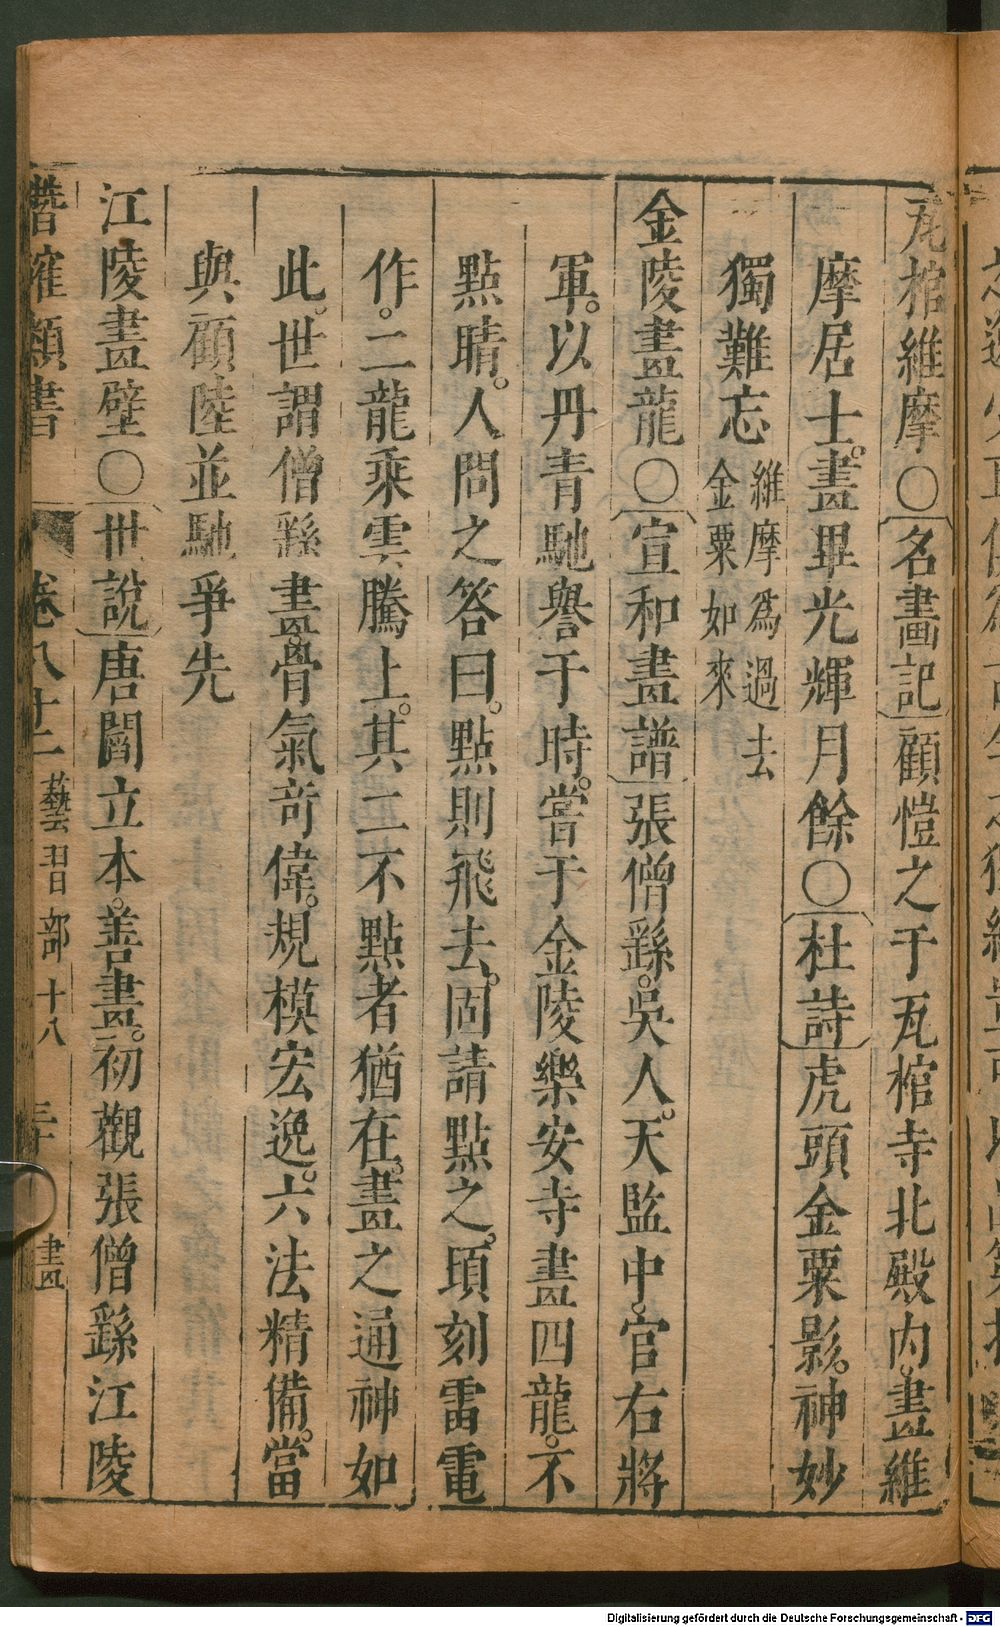 瓦棺維摩○名畫記顧愷之于瓦棺寺北殿内。畫維
摩居士。畫畢光輝月餘○杜詩虎頭金粟影。神妙
獨難忘維摩為過去
金粟如來
金陵畫龍○宣和畫譜張僧繇。吳人。天監中。官右將
軍。以丹青馳譽于時。嘗于金陵樂安寺畫四龍。不
點睛。人問之答曰。點則飛去。固請點之。頃刻雷電
作。二龍乘雲騰上。其二不點者猶在。畫之通神如
此。世謂僧繇畫。骨氣奇偉。規模宏逸。六法精備。當
與顧陸並馳爭先
江陵畫壁○世說唐閻立本。善畫。初觀張僧繇江陵
潛確類書 卷八十二 藝習部十八 三十 畫
Digitalisierung gefördert durch die Deutsche Forschungsgemeinschaft - DFG